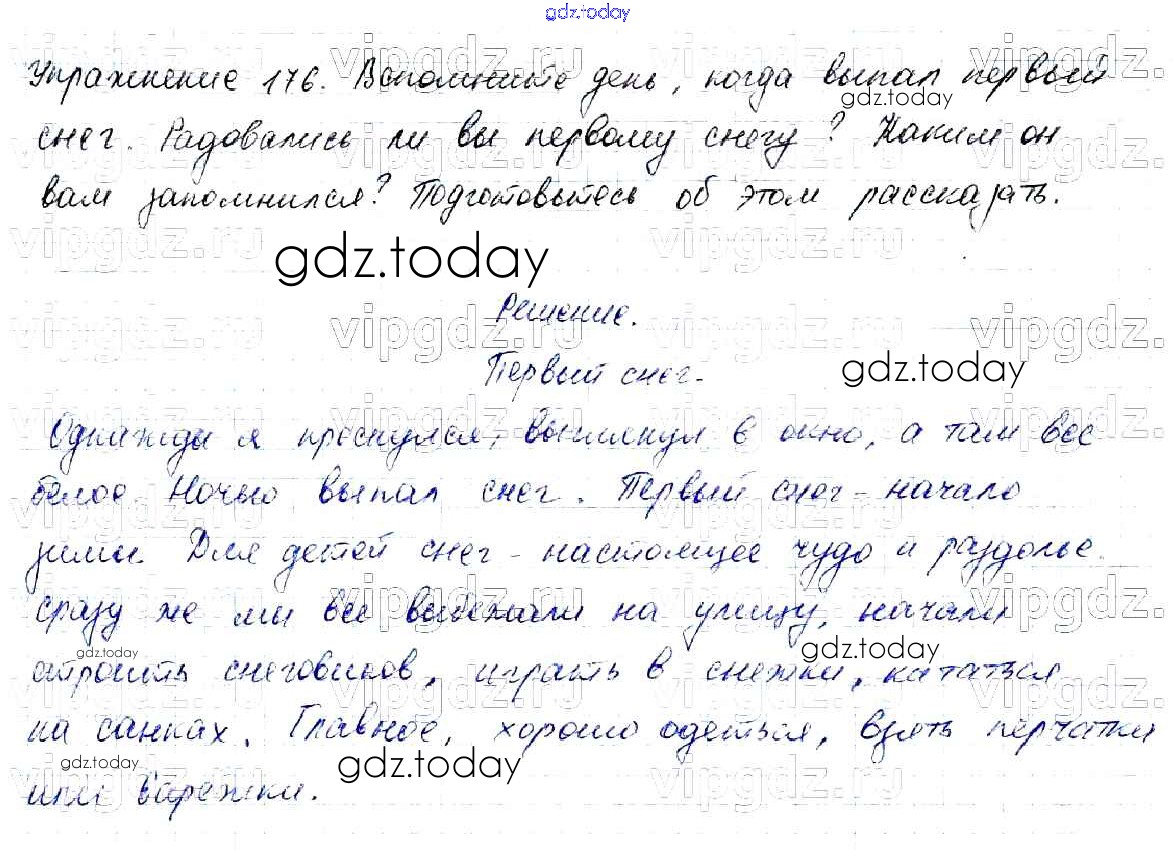 gdz.today
Упражнение 176. Вспомните день, когда выпал первый
gdz.today
снег. Радовались ли вы первому снегу? Каким он
вам запомнился? Подготовьтесь об этом рассказать.
gdz.today
Решение.
Первый снег.
gdz.today
Однажды я проснулся, выглянул в окно, а там все
белое. Ночью выпал снег. Первый снег - начало
зимы. Для детей снег - настоящее чудо и раздолье.
сразу же мы все выбежали на улицу, начали
gdz.today
gdz.today
строить снеговиков, играть в снежки, кататься
на санках. Главное, хорошо одеться, взять перчатки
gdz.today
gdz.today
или варежки.
vipgdz.ru